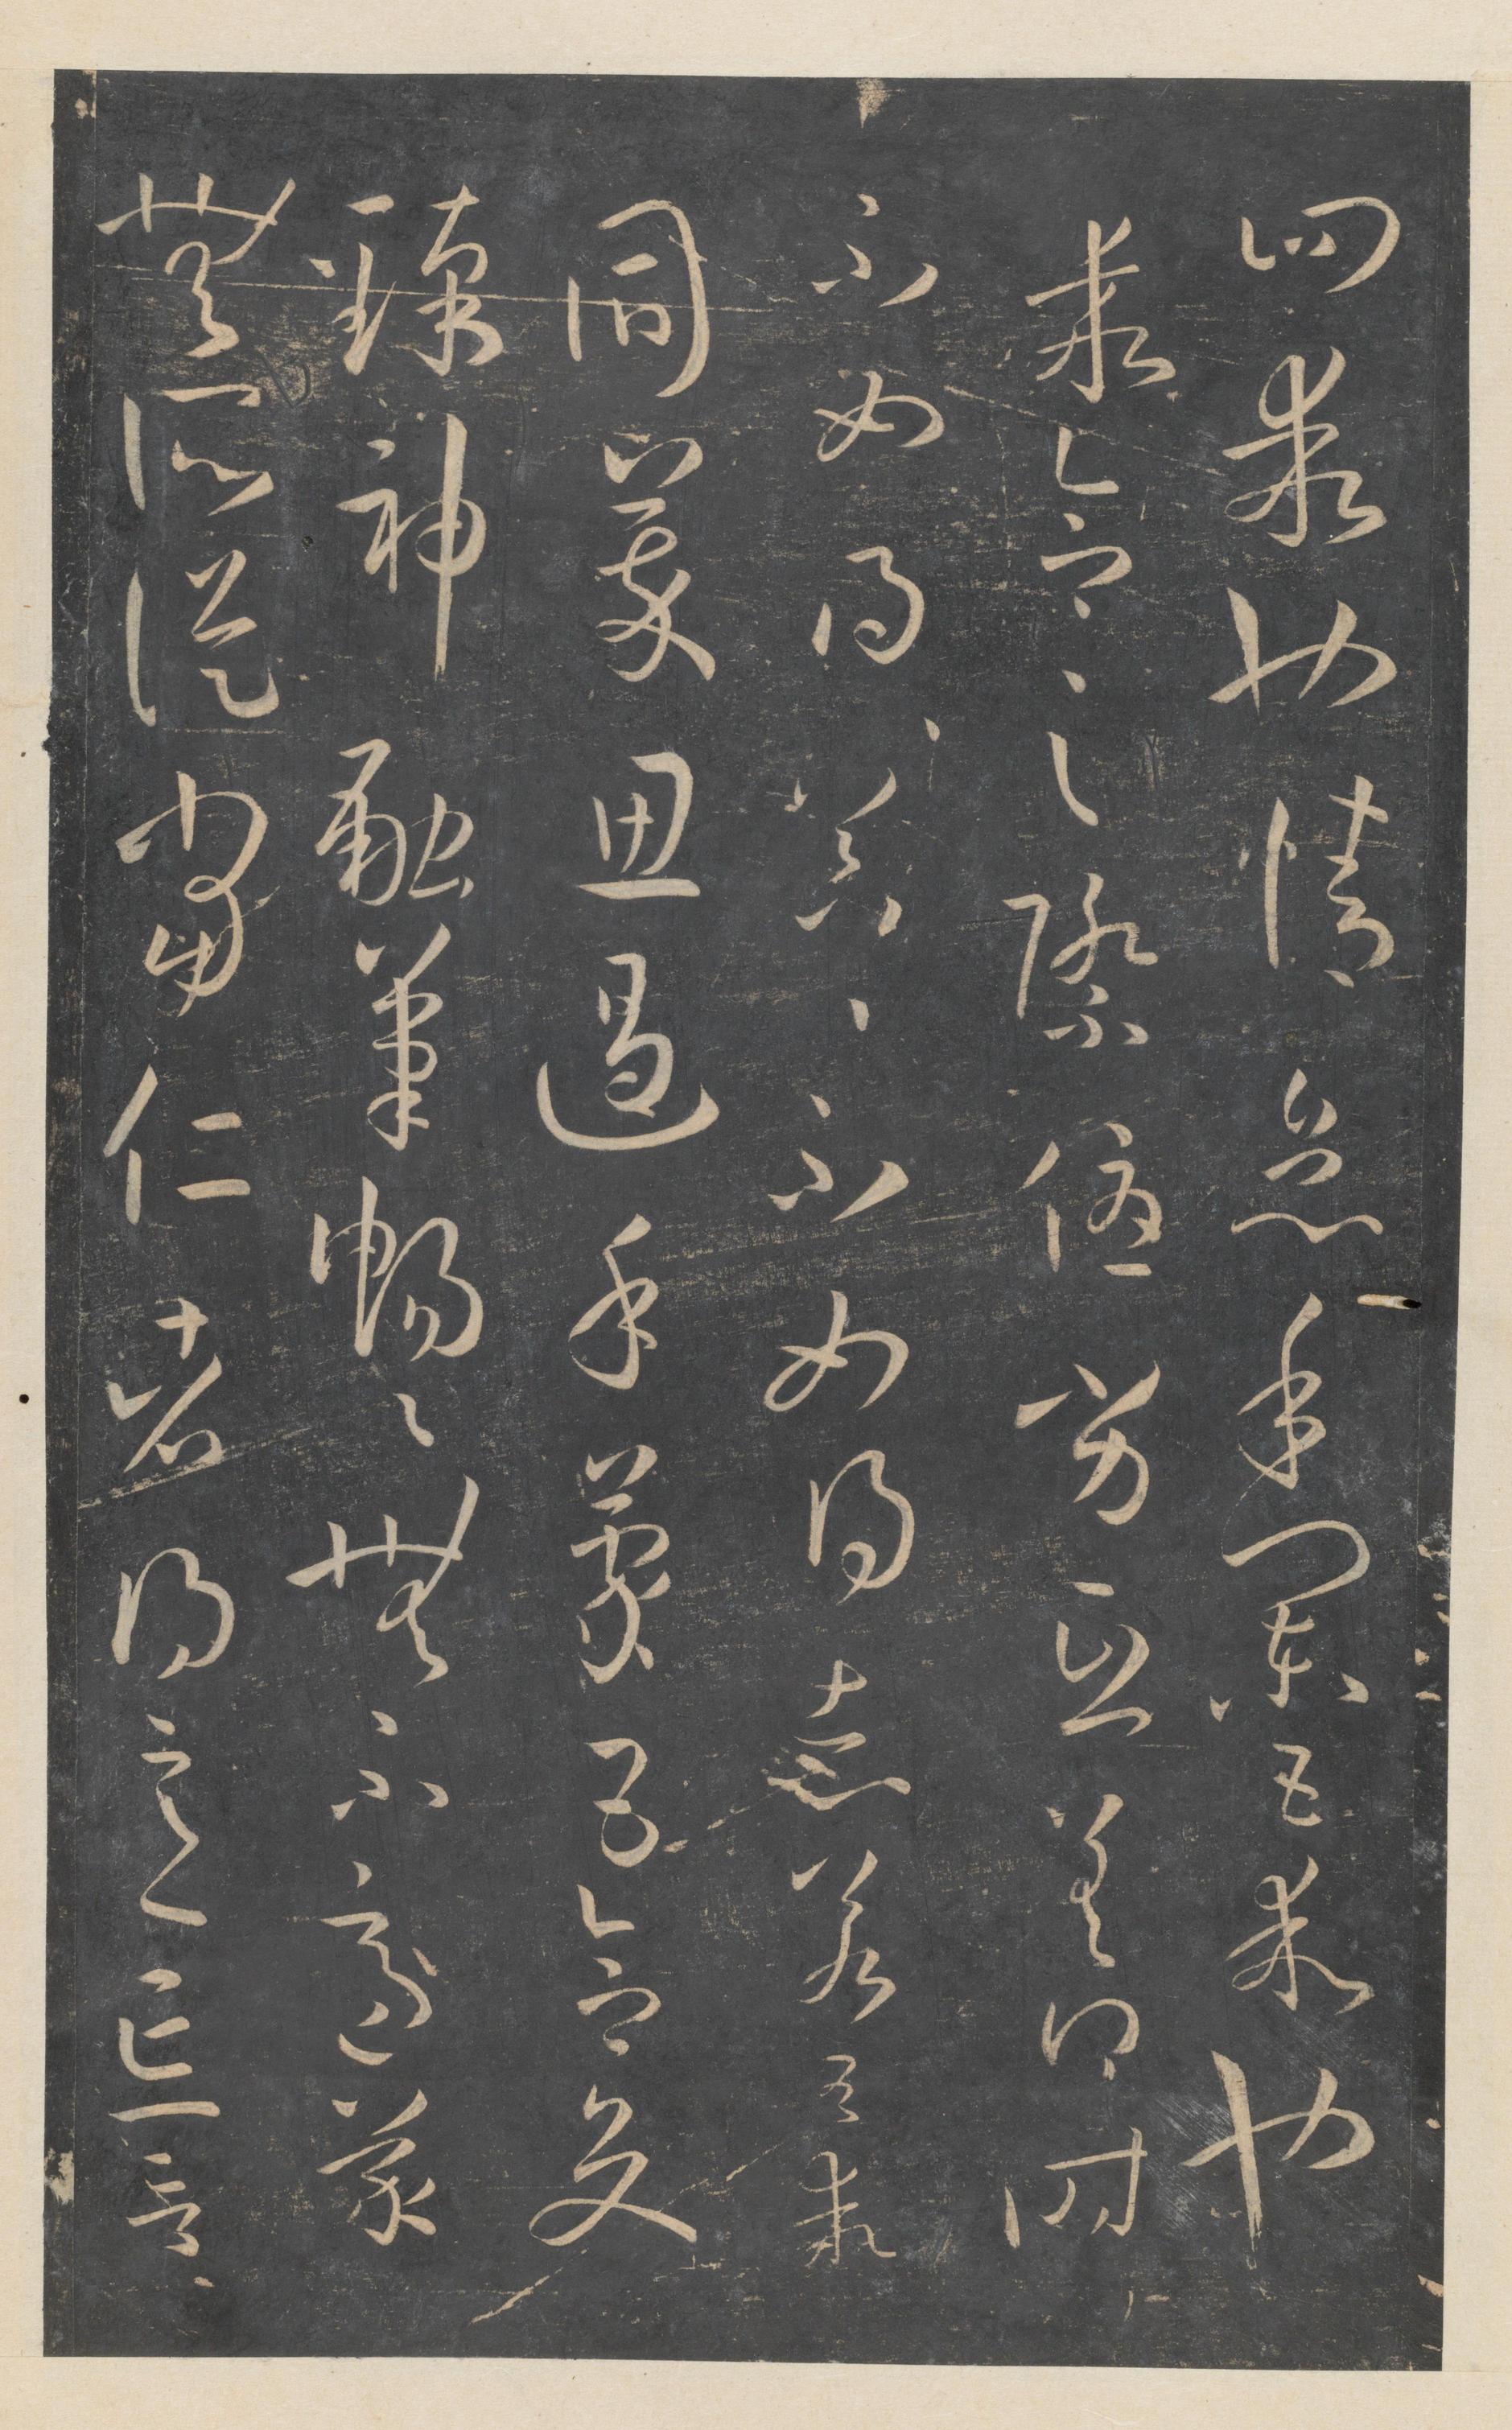 四乖也情怠手闌五乖也
乖合之際優劣互差得時
不如得〻器〻不如得志若五乖
同萃思遏手蒙五合交
臻神融筆暢〻無不適蒙
無所從當仁者得意忘言